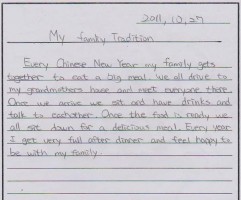 2011, 10, 27
My family Tradition
Every Chinese New Year my family gets
together to eat a big meal. We all drive to
my grandmothers house and meet everyone there.
Once we arrive we sit and have drinks and
talk to eachother. Once the food is ready we
all sit down for a delicious meal. Every year
I get very full after dinner and feel happy to
be with my family.